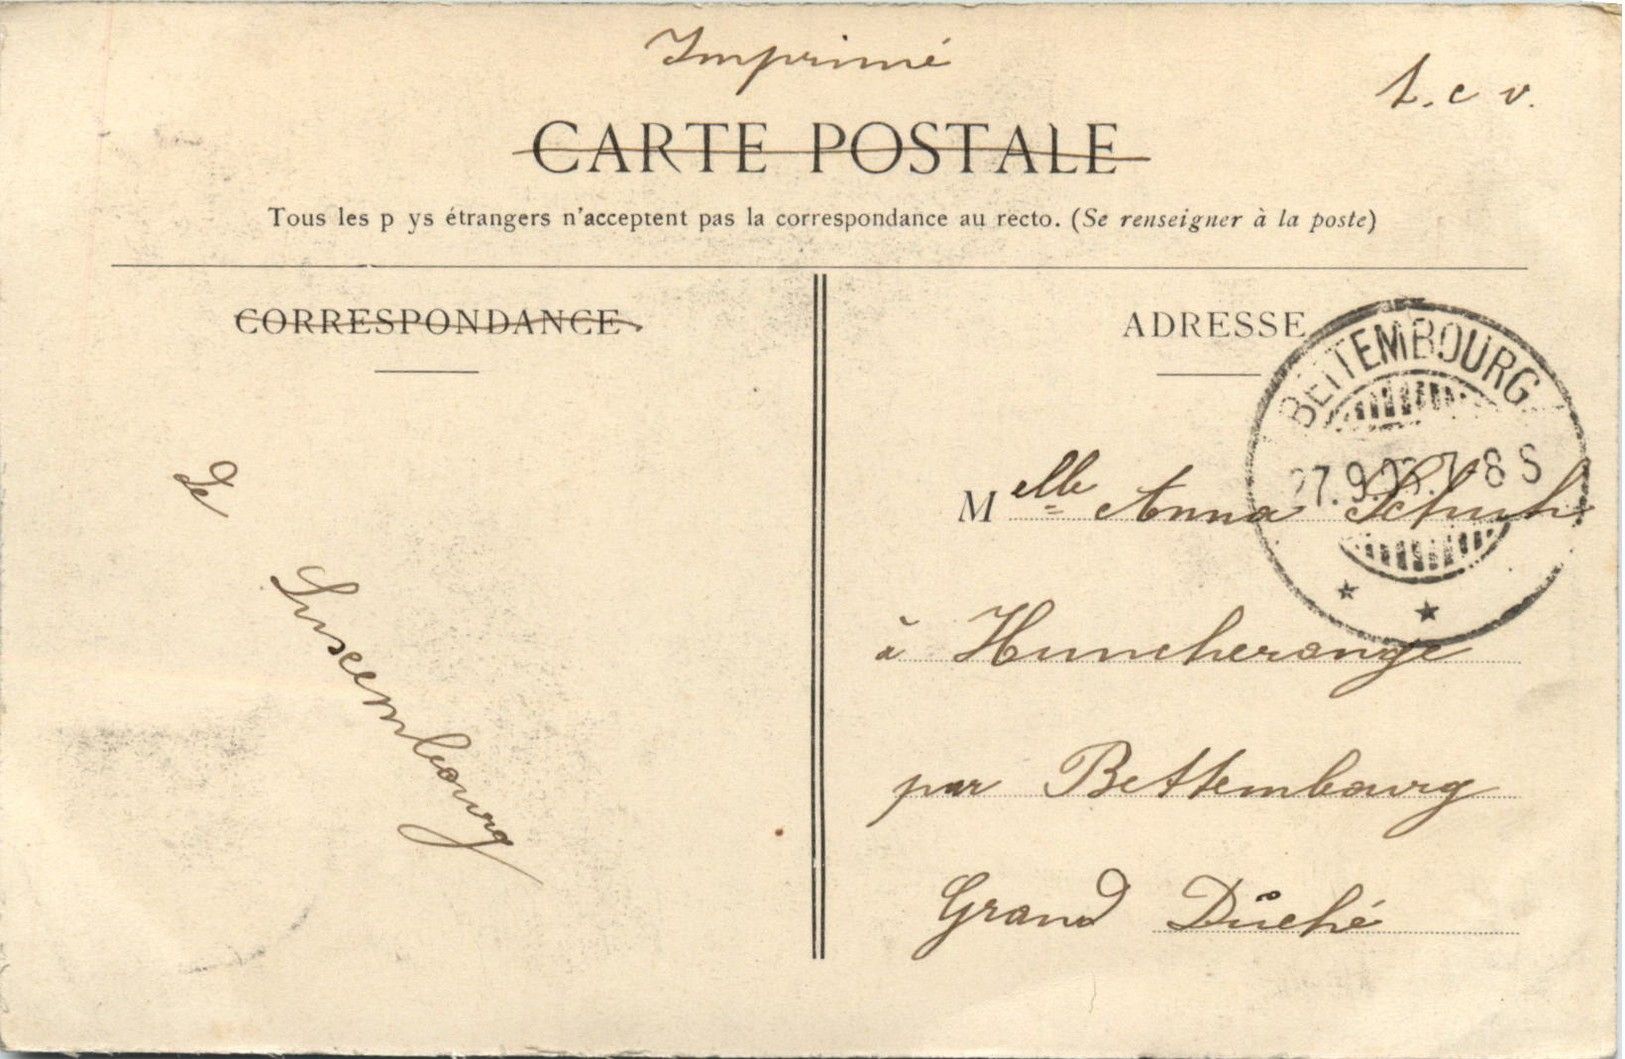 Imprimé
t. c v.
CARTE POSTALE
Tous les p ys étrangers n'acceptent pas la correspondance au recto. (Se renseigner à la poste)
CORRESPONDANCE
ADRESSE
BETTEMBOURG
27.9. 7-8 S
de
Luxembourg
Melle Anna Schuh
à Huncherange
par Bettembourg
Grand Duché